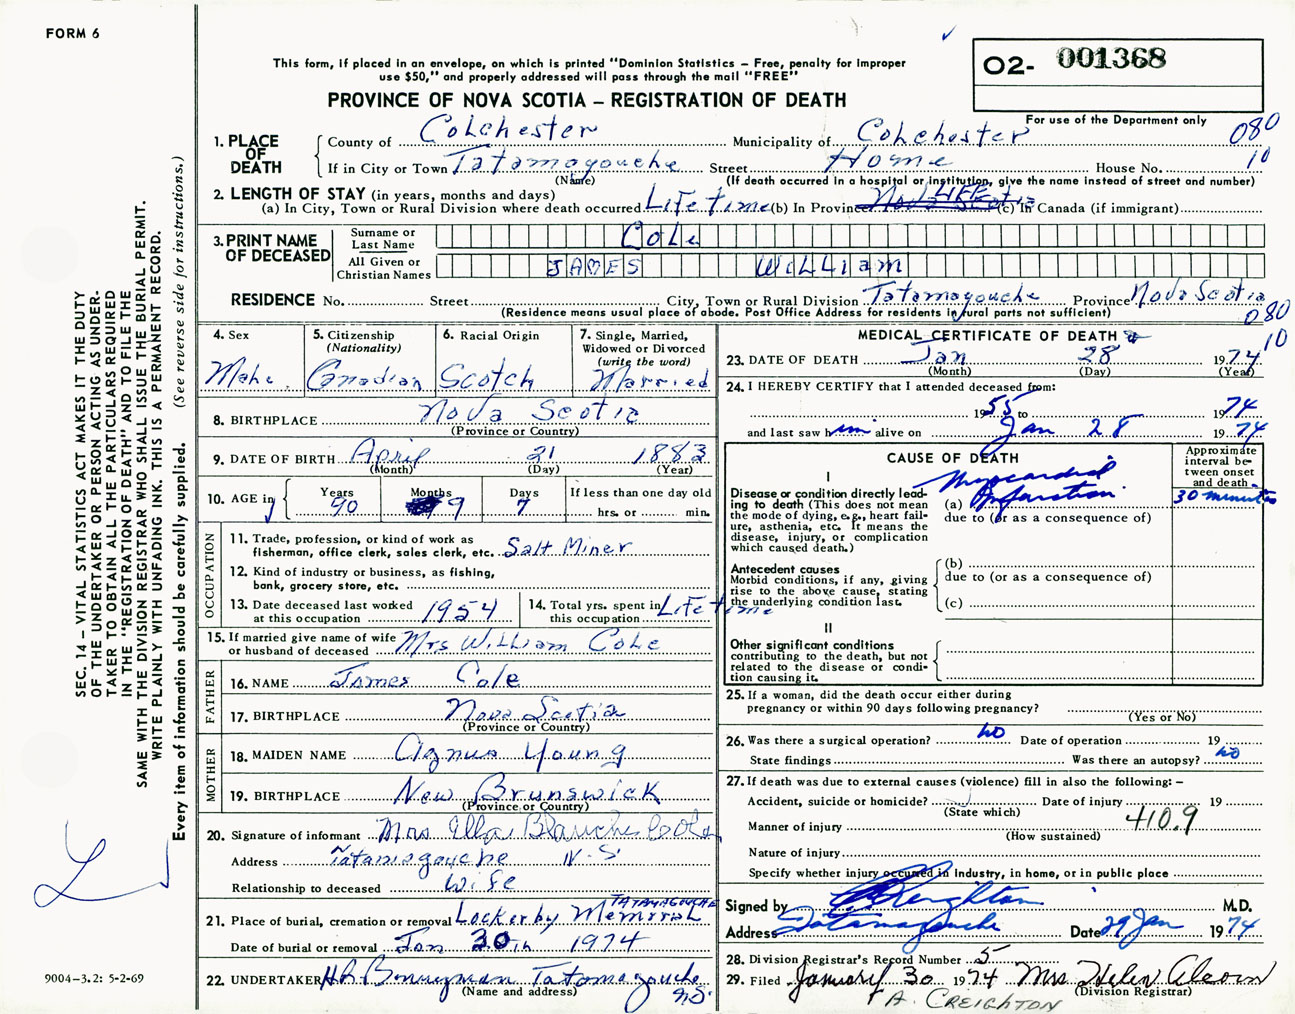 FORM 6
This form, if placed in an envelope, on which is printed "Dominion Statistics – Free, penalty for improper
use $50," and properly addressed will pass through the mail "FREE"
PROVINCE OF NOVA SCOTIA – REGISTRATION OF DEATH
O2- 001368
For use of the Department only
080
10
1. PLACE OF DEATH
County of Colchester Municipality of Colchester
If in City or Town Tatamagouche Street Home House No.
(Name) (If death occurred in a hospital or institution, give the name instead of street and number)
2. LENGTH OF STAY (in years, months and days)
(a) In City, Town or Rural Division where death occurred Lifetime (b) In Province LIFE (c) In Canada (if immigrant)
3. PRINT NAME OF DECEASED
Surname or Last Name Cole
All Given or Christian Names JAMES William
RESIDENCE No. Street City, Town or Rural Division Tatamagouche Province Nova Scotia
(Residence means usual place of abode. Post Office Address for residents in rural parts not sufficient)
080
10
4. Sex
Male
5. Citizenship
(Nationality)
Canadian
6. Racial Origin
Scotch
7. Single, Married,
Widowed or Divorced
(write the word)
Married
8. BIRTHPLACE Nova Scotia
(Province or Country)
9. DATE OF BIRTH April 21 1883
(Month) (Day) (Year)
10. AGE in
Years Months Days If less than one day old
90 9 7 hrs. or min.
OCCUPATION
11. Trade, profession, or kind of work as
fisherman, office clerk, sales clerk, etc. Salt Miner
12. Kind of industry or business, as fishing,
bank, grocery store, etc.
13. Date deceased last worked
at this occupation 1954
14. Total yrs. spent in
this occupation Lifetime
15. If married give name of wife
or husband of deceased Mrs William Cole
FATHER
16. NAME James Cole
17. BIRTHPLACE Nova Scotia
(Province or Country)
MOTHER
18. MAIDEN NAME Agnus Young
19. BIRTHPLACE New Brunswick
(Province or Country)
20. Signature of informant Mrs Ella Blanche Cole
Address Tatamagouche N.S
Relationship to deceased wife
21. Place of burial, cremation or removal Lockerby Memorial TATAMAGOUCHE
Date of burial or removal Jan 30th 1974
22. UNDERTAKER Tatamagouche
(Name and address) N.S.
MEDICAL CERTIFICATE OF DEATH
23. DATE OF DEATH Jan 28 1974
(Month) (Day) (Year)
24. I HEREBY CERTIFY that I attended deceased from:
1955 to 1974
and last saw him alive on Jan 28 1974
CAUSE OF DEATH
Approximate
interval be-
tween onset
and death
I
Disease or condition directly lead-
ing to death (This does not
mean the mode of dying, e.g., heart fail-
ure, asthenia, etc. It means the
disease, injury, or complication
which caused death.)
(a) Myocardial Infarction 30 minutes
due to (or as a consequence of)
Antecedent causes
Morbid conditions, if any, giving
rise to the above cause, stating
the underlying condition last.
(b)
due to (or as a consequence of)
(c)
II
Other significant conditions
contributing to the death, but not
related to the disease or condi-
tion causing it.
25. If a woman, did the death occur either during
pregnancy or within 90 days following pregnancy?
(Yes or No)
26. Was there a surgical operation? no Date of operation 19
State findings Was there an autopsy? no
27. If death was due to external causes (violence) fill in also the following: –
Accident, suicide or homicide? Date of injury 19
(State which)
Manner of injury 410.9
(How sustained)
Nature of injury
Specify whether injury occured in industry, in home, or in public place
Signed by Creighton M.D.
Address Tatamagouche Date 29 Jan 1974
28. Division Registrar's Record Number 5
29. Filed January 30 1974 Mrs Helen
(Division Registrar)
A. CREIGHTON
SEC. 14 – VITAL STATISTICS ACT MAKES IT THE DUTY
OF THE UNDERTAKER OR PERSON ACTING AS UNDER-
TAKER TO OBTAIN ALL THE PARTICULARS REQUIRED
IN THE "REGISTRATION OF DEATH" AND TO FILE THE
SAME WITH THE DIVISION REGISTRAR WHO SHALL ISSUE THE BURIAL PERMIT.
WRITE PLAINLY WITH UNFADING INK. THIS IS A PERMANENT RECORD.
Every item of information should be carefully supplied. (See reverse side for instructions.)
9004-3.2: 5-2-69